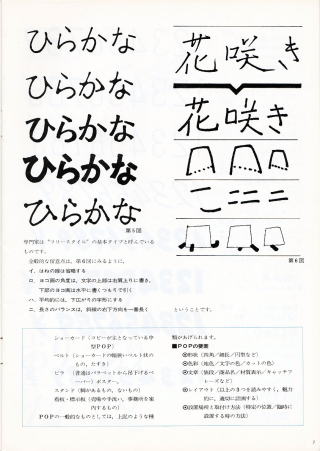 ひらかな
ひらかな
ひらかな
ひらかな
ひらかな
第5図
花咲き
花咲き
第6図
専門家は"フリースタイル"の基本タイプと呼んでいる
ものです。
全般的な留意点は、第6図にみるように、
イ、はねの線は省略する
ロ、ヨコ画の角度は、文字の上部は右肩上りに書き、
下部のヨコ画は水平に書くつもりで引く
ハ、平均的には、下広がりの字形にする
ニ、長さのバランスは、斜線の右下方向を一番長く
ということです。
ショーカード(コピーが主となっている中
型POP)
ベルト(ショーカードの短冊・ベルト状の
もの、たすき)
ビラ(普通はパラペットから吊下げるペ
ーパー)ポスター。
スタンド(脚があるもの、ないもの)
看板・標示板(売場や手洗い、事務所を案
内するもの)
POPの一般的なものとしては、上記のような種
類があげられます。
■POPの要素
形態(四角/細長/円型など)
色彩(地色/文字の色/カットの色)
文章(値段/商品名/材質表示/キャッチフ
レーズなど)
レイアウト(以上の3つを読みやすく、魅力
的に、適切に計画する)
設置場所と取付け方法(特定の位置/臨時に
設置する時の方法)